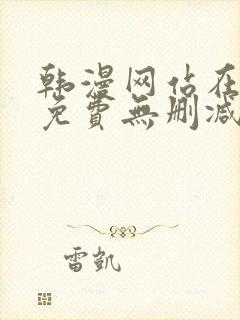 韩漫网站在
免費無删减
雷凱